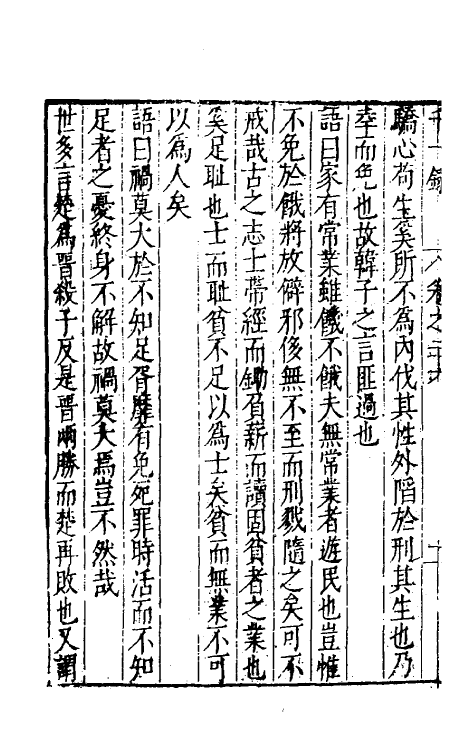 千一錄
卷之二十六
十
驕心苟生奚所不為內伐其性外陷於刑其生也乃
幸而免也故韓子之言匪過也
語曰家有常業雖饑不餓夫無常業者遊民也豈惟
不免於餓將放僻邪侈無不至而刑戮隨之矣可不
戒哉古之志士帶經而鋤負薪而讀固貧者之業也
奚足耻也士而耻貧不足以為士矣貧而無業不可
以為人矣
語曰禍莫大於不知足胥靡有免死罪時活而不知
足者之憂終身不解故禍莫大焉豈不然哉
世多言楚為晋殺子反是晋兩勝而楚再敗也又謂